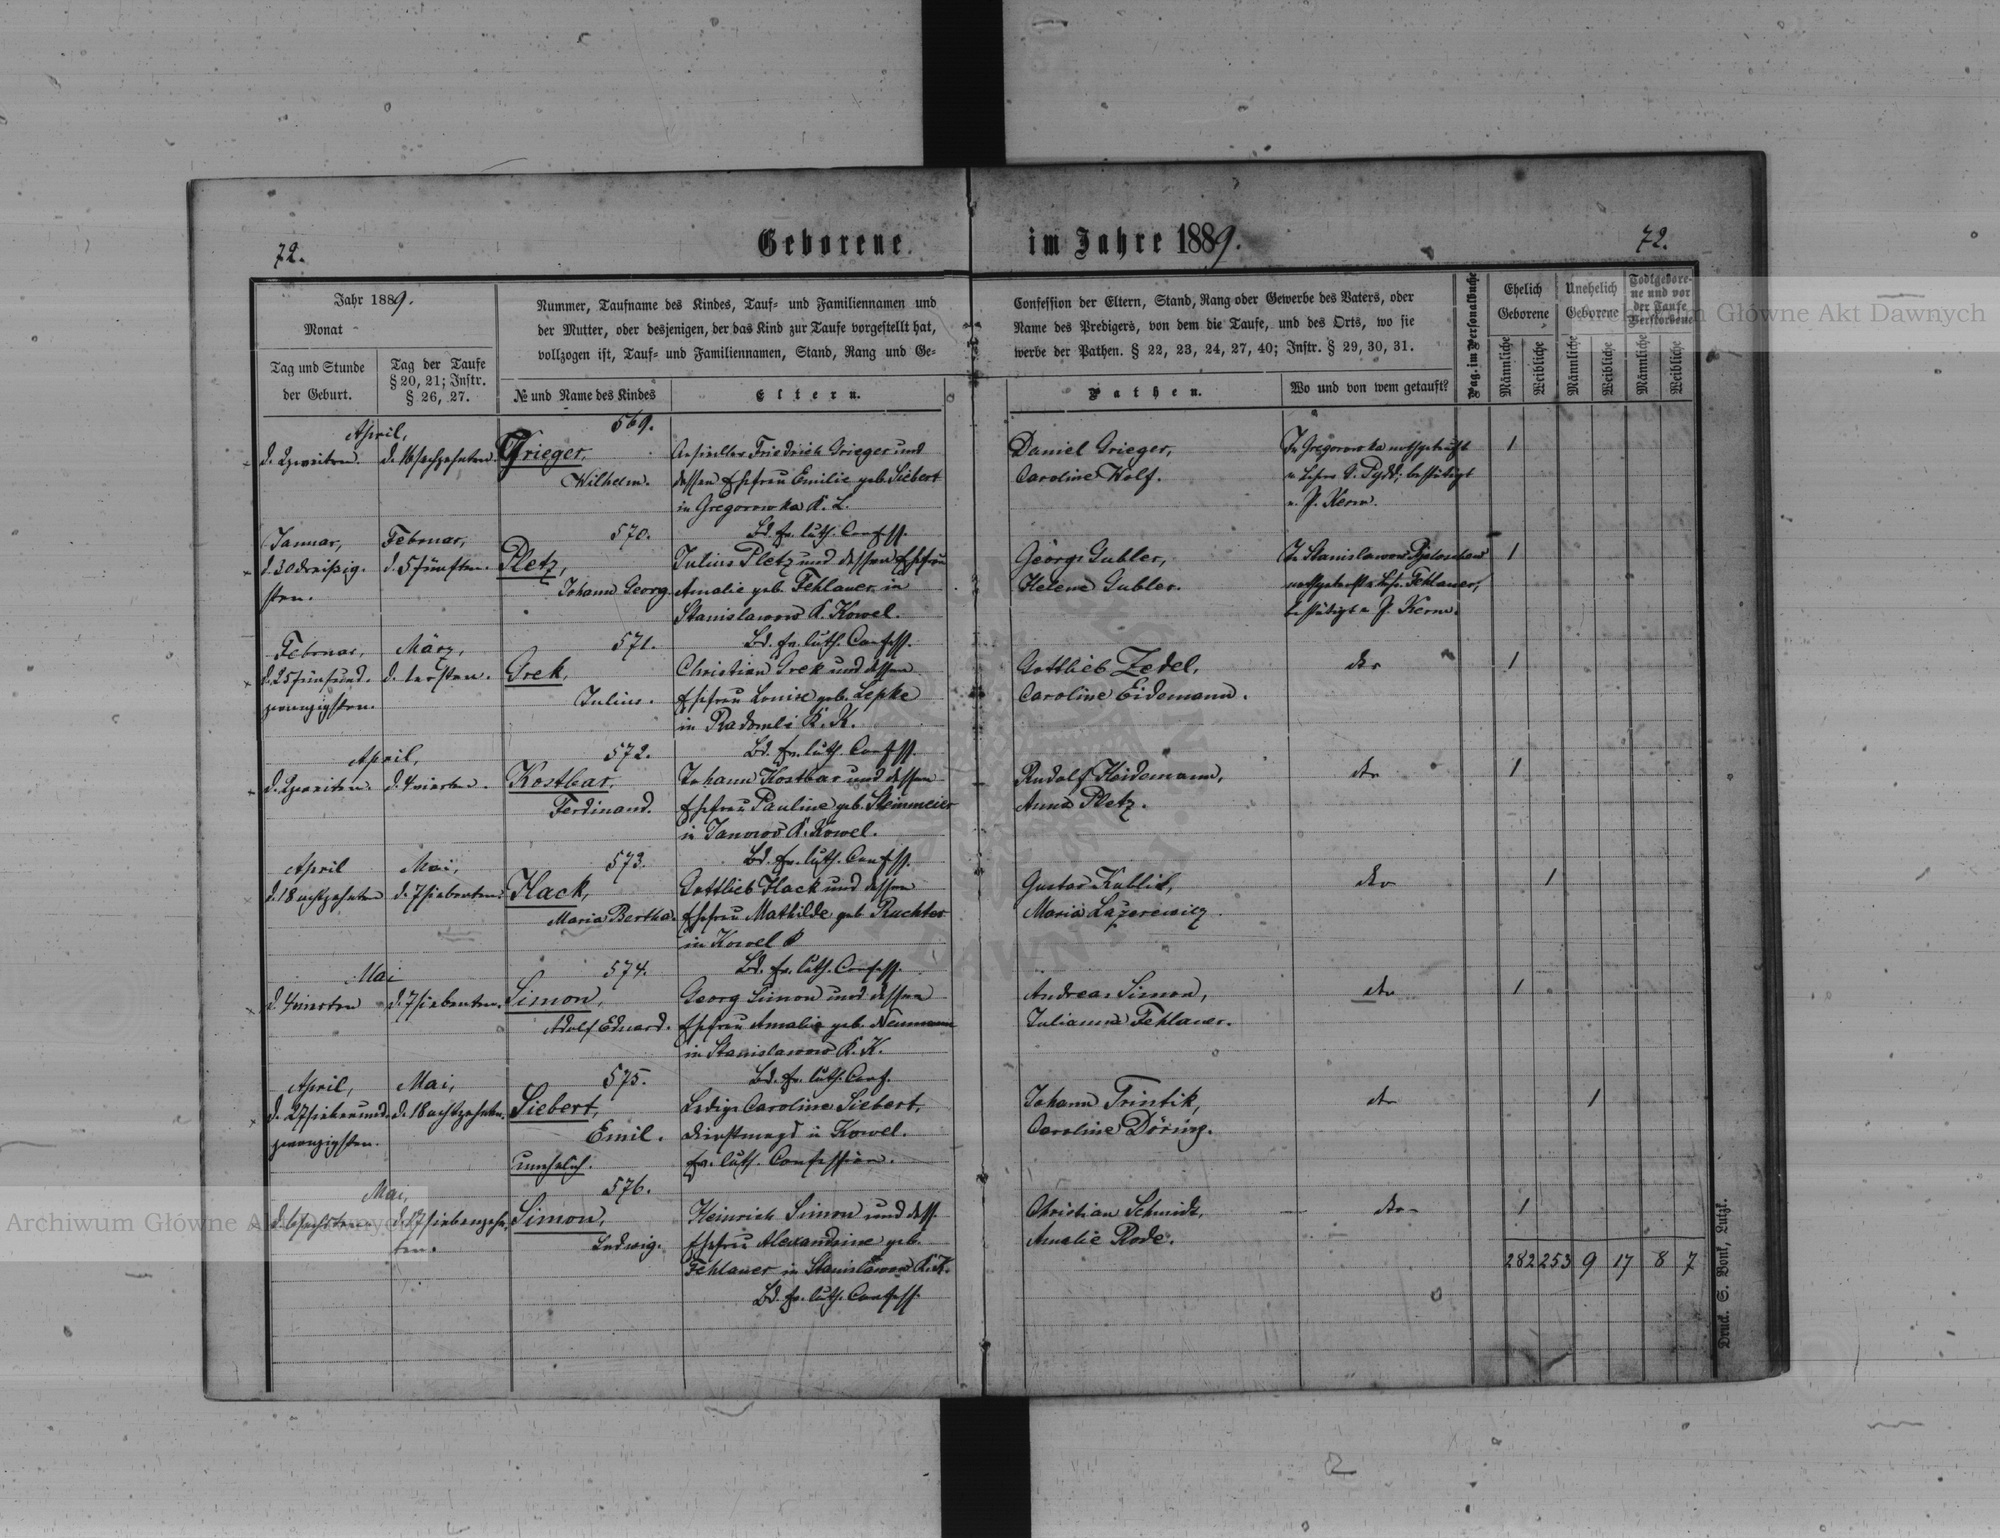 72.
Geborene
im Jahre 1889.
72.
Jahr 1889.
Monat
Tag und Stunde
der Geburt.
Tag der Taufe
§ 20, 21; Instr.
§ 26, 27.
Nummer, Taufname des Kindes, Tauf- und Familiennamen und
der Mutter, oder desjenigen, der das Kind zur Taufe vorgestellt hat,
vollzogen ist, Tauf- und Familiennamen, Stand, Rang und Ge-
№ und Name des Kindes
Eltern.
Confession der Eltern, Stand, Rang oder Gewerbe des Vaters, oder
Name des Predigers, von dem die Taufe, und des Orts, wo sie
werbe der Pathen. § 22, 23, 24, 27, 40; Instr. § 29, 30, 31.
Pathen.
Wo und von wem getauft?
Pag. im Personalbuche
Ehelich
Geborene
Unehelich
Geborene
Todtgebore-
ne und vor
der Taufe
Verstorbene
Männliche
Weibliche
Männliche
Weibliche
Männliche
Weibliche
April,
d. 2 zweiten.
d. 16 sechzehnten.
569.
Grieger,
Wilhelm.
Ansiedler Friedrich Grieger und
dessen Ehefrau Emilie geb. Siebert
in Gregorowka K. L.
Bd. ev. luth. Confess.
Daniel Grieger,
Caroline Wolf.
In Gregorowka nothgetauft
bestätigt
v. P. Kern.
1
Januar,
d. 30 dreißig-
sten.
Februar,
d. 5 fünften.
570.
Pletz,
Johann Georg.
Julius Pletz und dessen Ehefrau
Amalie geb. Fehlauer in
Stanislawow K. Kowel.
Bd. ev. luth. Confess.
Georg Gubler,
Helene Gubler.
In Stanislawow
nothgetauft v. Fehlauer,
bestätigt v. P. Kern.
1
Februar,
d. 25 fünfund-
zwanzigsten.
März,
d. 1 ersten.
571.
Grek,
Julius.
Christian Grek und dessen
Ehefrau Louise geb. Lepke
in Radomle K. K.
Bd. ev. luth. Confess.
Gottlieb Zedel,
Caroline Eidemann.
dto
1
April,
d. 2 zweiten.
d. 4 vierten.
572.
Kostbar,
Ferdinand.
Johann Kostbar und dessen
Ehefrau Pauline geb. Steinmeier
in Janowo K. Kowel.
Bd. ev. luth. Confess.
Rudolf Heidemann,
Anna Pletz.
dto
1
April
d. 18 achtzehnten
Mai,
d. 7 siebenten.
573.
Hack,
Maria Bertha.
Gottlieb Hack und dessen
Ehefrau Mathilde geb. Ruchter
in Kowel
Bd. ev. luth. Confess.
Gustav Kublik,
Maria Lazerewicz.
dto
1
Mai
d. 4 vierten
d. 7 siebenten.
574.
Simon,
Adolf Eduard.
Georg Simon und dessen
Ehefrau Amalie geb. Neumann
in Stanislawow K. K.
Bd. ev. luth. Conf.
Andreas Simon,
Julianna Fehlauer.
dto
1
April,
d. 27 siebenund-
zwanzigsten.
Mai,
d. 18 achtzehnten.
575.
Siebert,
Emil.
unehelich.
Ledige Caroline Siebert,
Dienstmagd in Kowel.
ev. luth. Confession.
Johann Trintik,
Caroline Döring.
dto
1
Mai,
d. 6 sechsten.
d. 17 siebenzehn-
ten.
576.
Simon,
Ludwig.
Heinrich Simon und dess.
Ehefrau Alexandrine geb.
Fehlauer in Stanislawow K. K.
Bd. ev. luth. Confess.
Christian Schmidt,
Amalie Rode.
dto
1
282 253 9 17 8 7
Druck. S. Bonk, Lutzk.
Archiwum Główne Akt Dawnych
Archiwum Główne Akt Dawnych